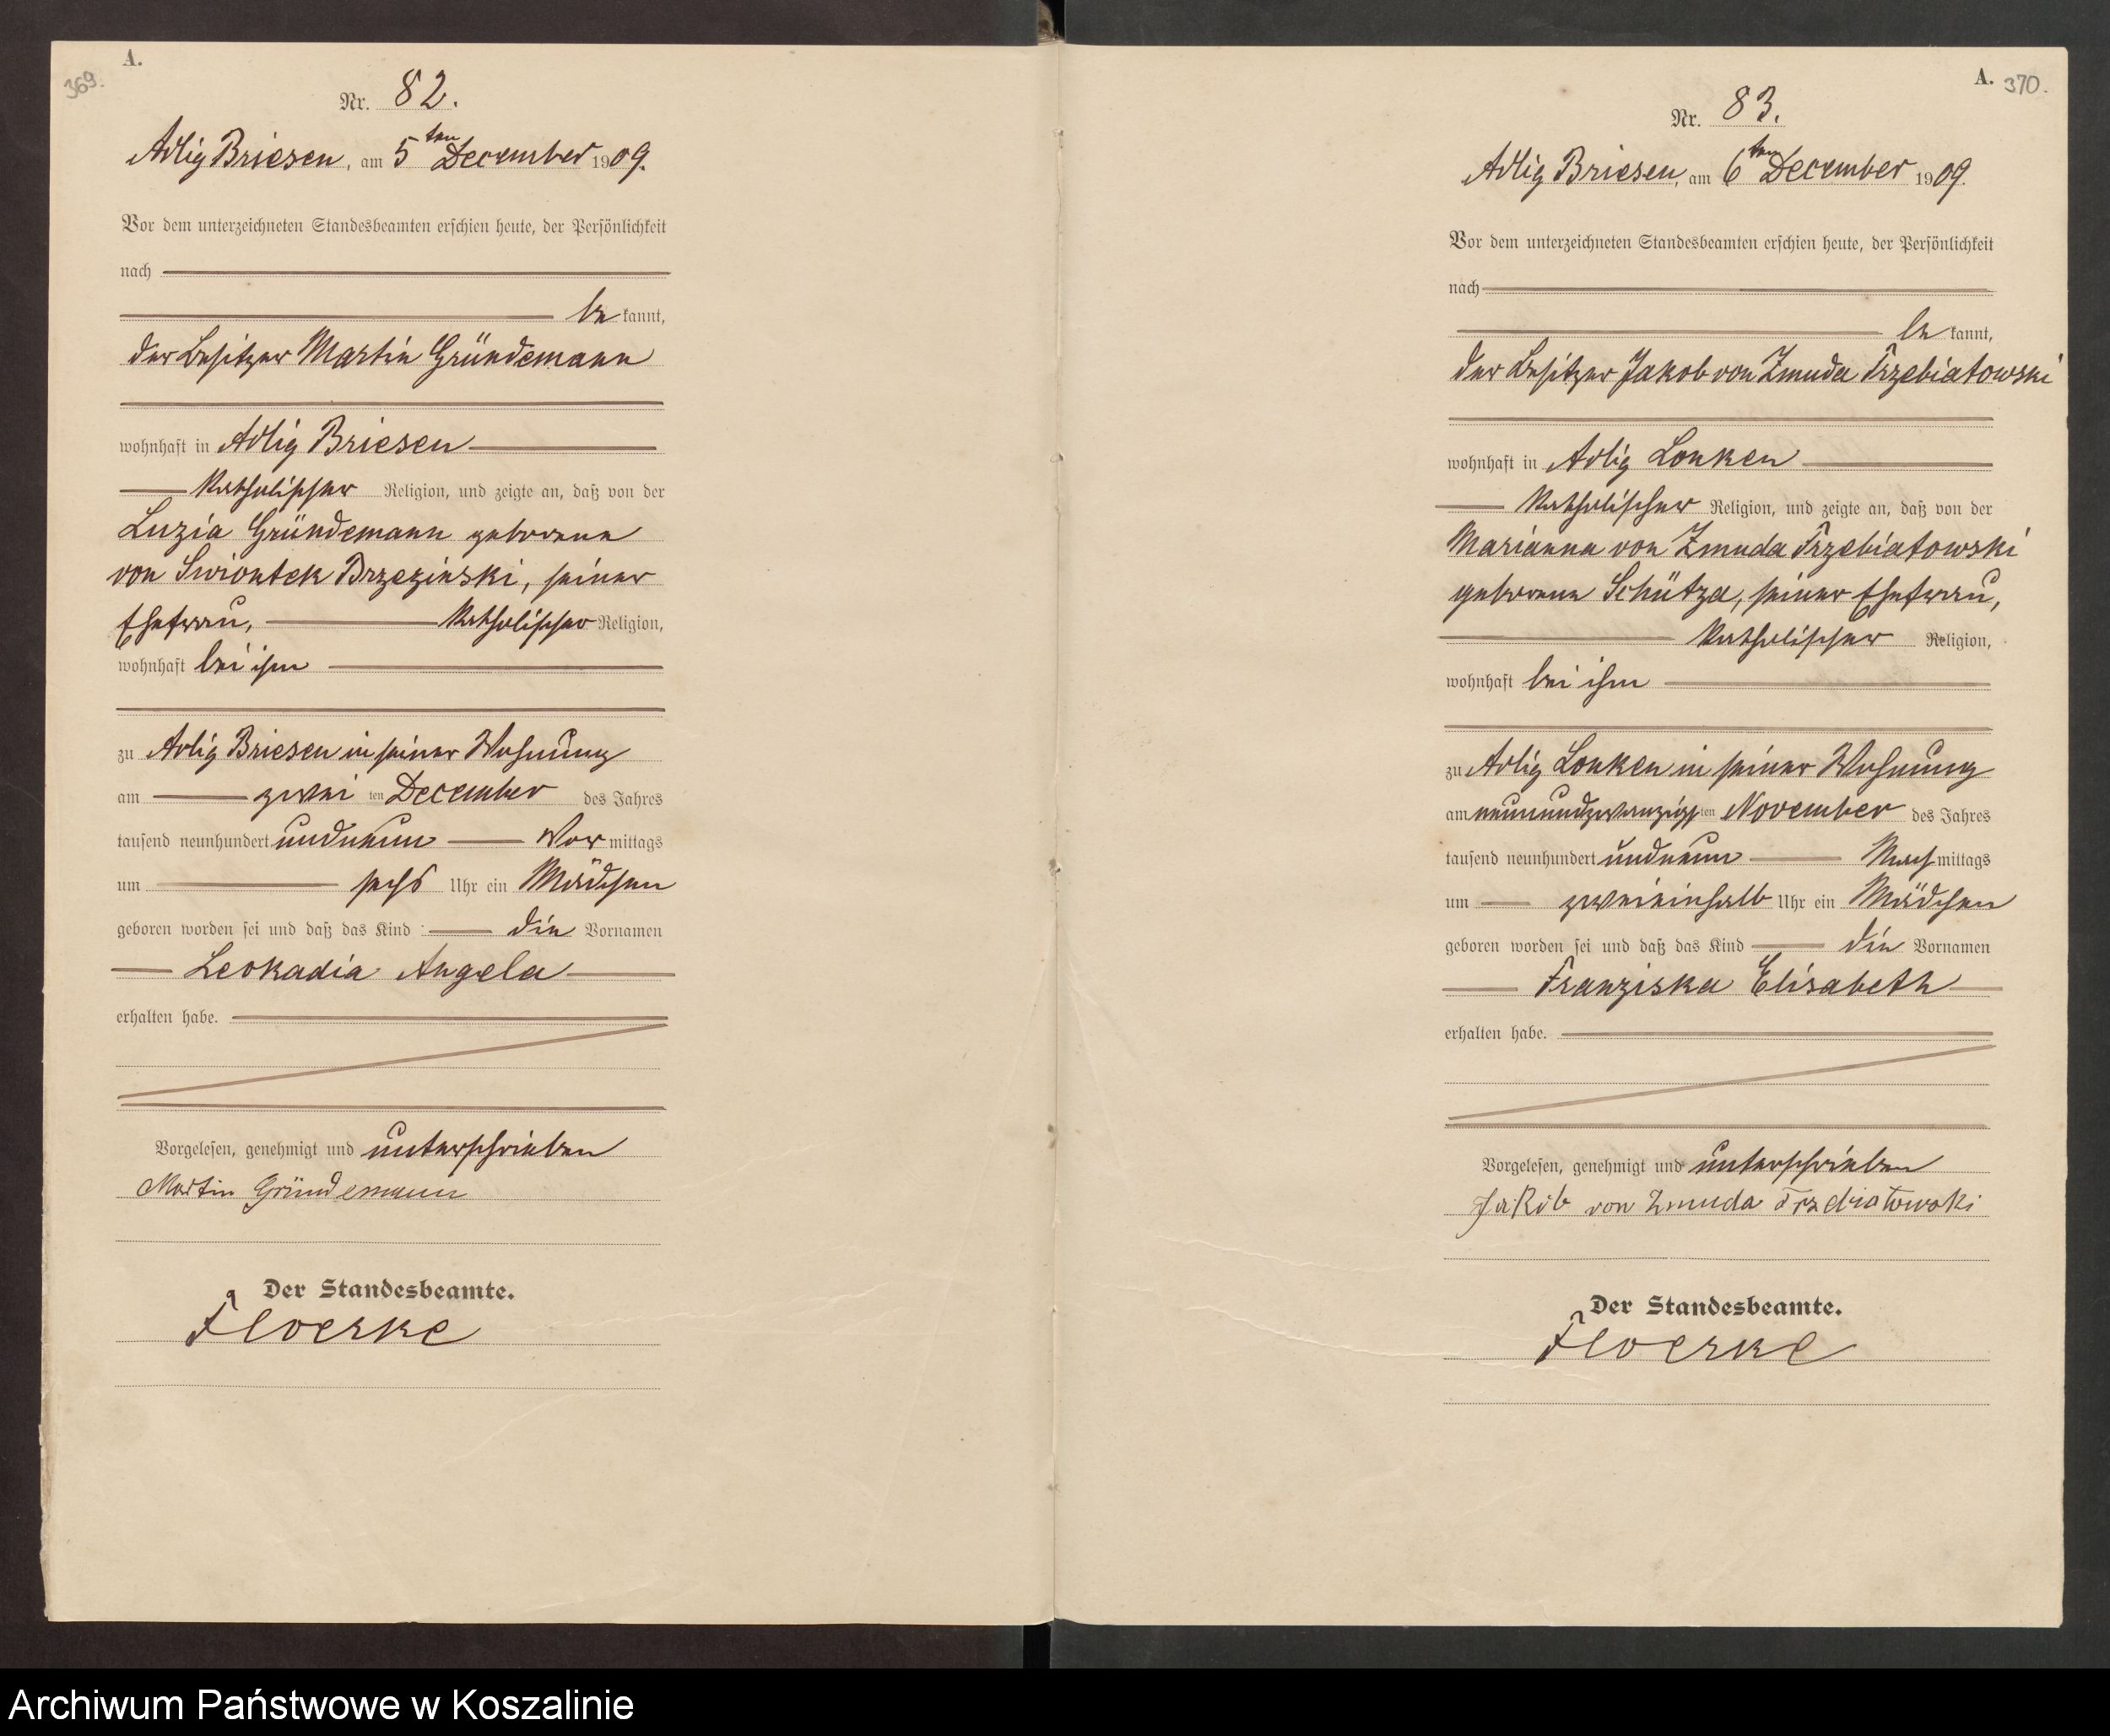 A.
369.
Nr. 82.
Adlig Briesen, am 5ten December 1909.
Vor dem unterzeichneten Standesbeamten erschien heute, der Persönlichkeit
nach
be kannt,
der Besitzer Martin Gründemann
wohnhaft in Adlig Briesen
katholischer Religion, und zeigte an, daß von der
Luzia Gründemann geborene
von Swiontek Brzezinski, seiner
Ehefrau, katholischer Religion,
wohnhaft bei ihm
zu Adlig Briesen in seiner Wohnung
am zwei ten December des Jahres
tausend neunhundert undneun Vor mittags
um sechs Uhr ein Mädchen
geboren worden sei und daß das Kind die Vornamen
Leokadia Angela
erhalten habe.
Vorgelesen, genehmigt und unterschrieben
Martin Gründemann
Der Standesbeamte.
Floerke
A. 370.
Nr. 83.
Adlig Briesen, am 6ten December 1909.
Vor dem unterzeichneten Standesbeamten erschien heute, der Persönlichkeit
nach
be kannt,
der Besitzer Jakob von Zmuda Trzebiatowski
wohnhaft in Adlig Lonken
katholischer Religion, und zeigte an, daß von der
Marianna von Zmuda Trzebiatowski
geborene Schütza, seiner Ehefrau,
katholischer Religion,
wohnhaft bei ihm
zu Adlig Lonken in seiner Wohnung
am neunundzwanzigs ten November des Jahres
tausend neunhundert undneun Nach mittags
um zweieinhalb Uhr ein Mädchen
geboren worden sei und daß das Kind die Vornamen
Franziska Elisabeth
erhalten habe.
Vorgelesen, genehmigt und unterschrieben
Jakob von Zmuda Trzebiatowski
Der Standesbeamte.
Floerke
Archiwum Państwowe w Koszalinie